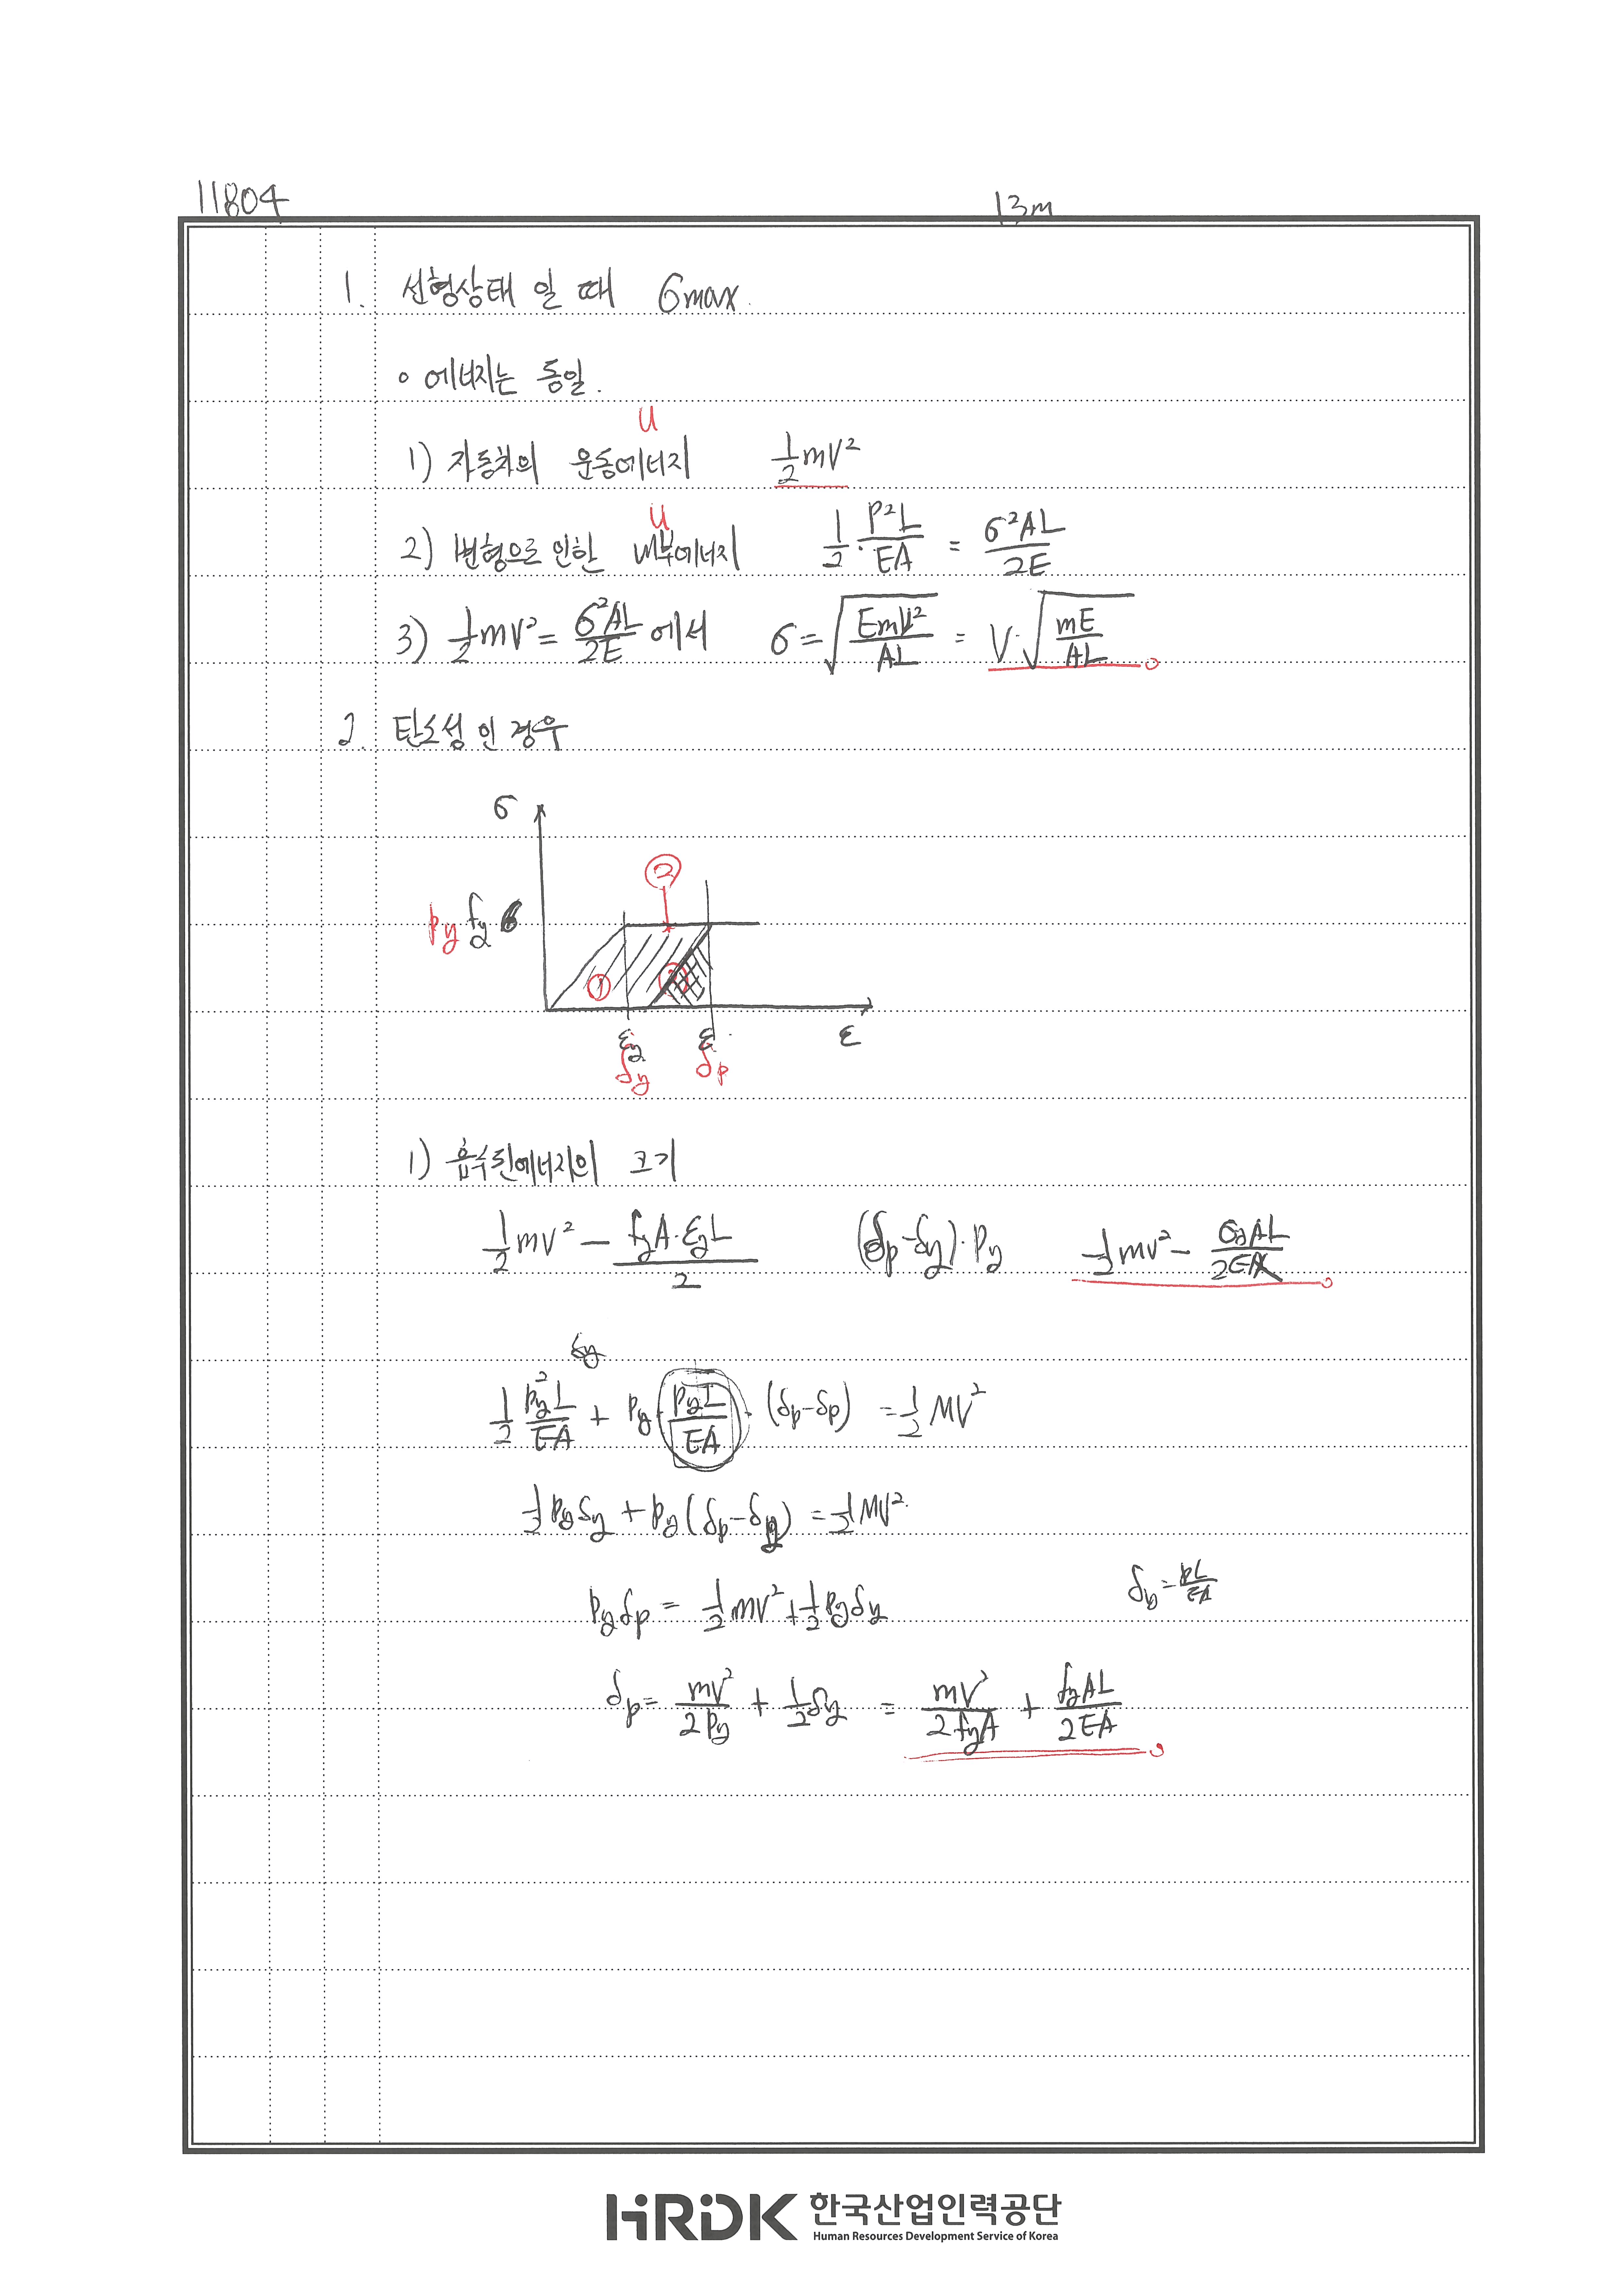 11804 13m
1. 선형상태 일 때 σmax.
∘ 에너지는 동일.
U
1) 자동차의 운동에너지 1/2 mV²
U
2) 변형으로 인한 내부에너지 1/2 · P²L/EA = σ²AL/2E
3) 1/2 mV² = σ²AL/2E 에서 σ = √(EmV²/AL) = V·√(mE/AL)
2. 탄소성 인 경우
σ
②
Py fy
①
εy ε ε
δy δp
1) 흡수된에너지의 크기
1/2 mv² - fyA·εyL/2 (δp-δy)·Py 1/2 mv² - σyAL/2EA
δy
1/2 Py²L/EA + Py · PyL/EA · (δp-δp) = 1/2 MV²
1/2 Pyδy + Py(δp-δy) = 1/2 MV²
δy = PL/EA
Pyδp = 1/2 mv² + 1/2 Pyδy
δp = mv²/2Py + 1/2 δy = mv²/2fyA + fyAL/2EA
HRDK 한국산업인력공단
Human Resources Development Service of Korea